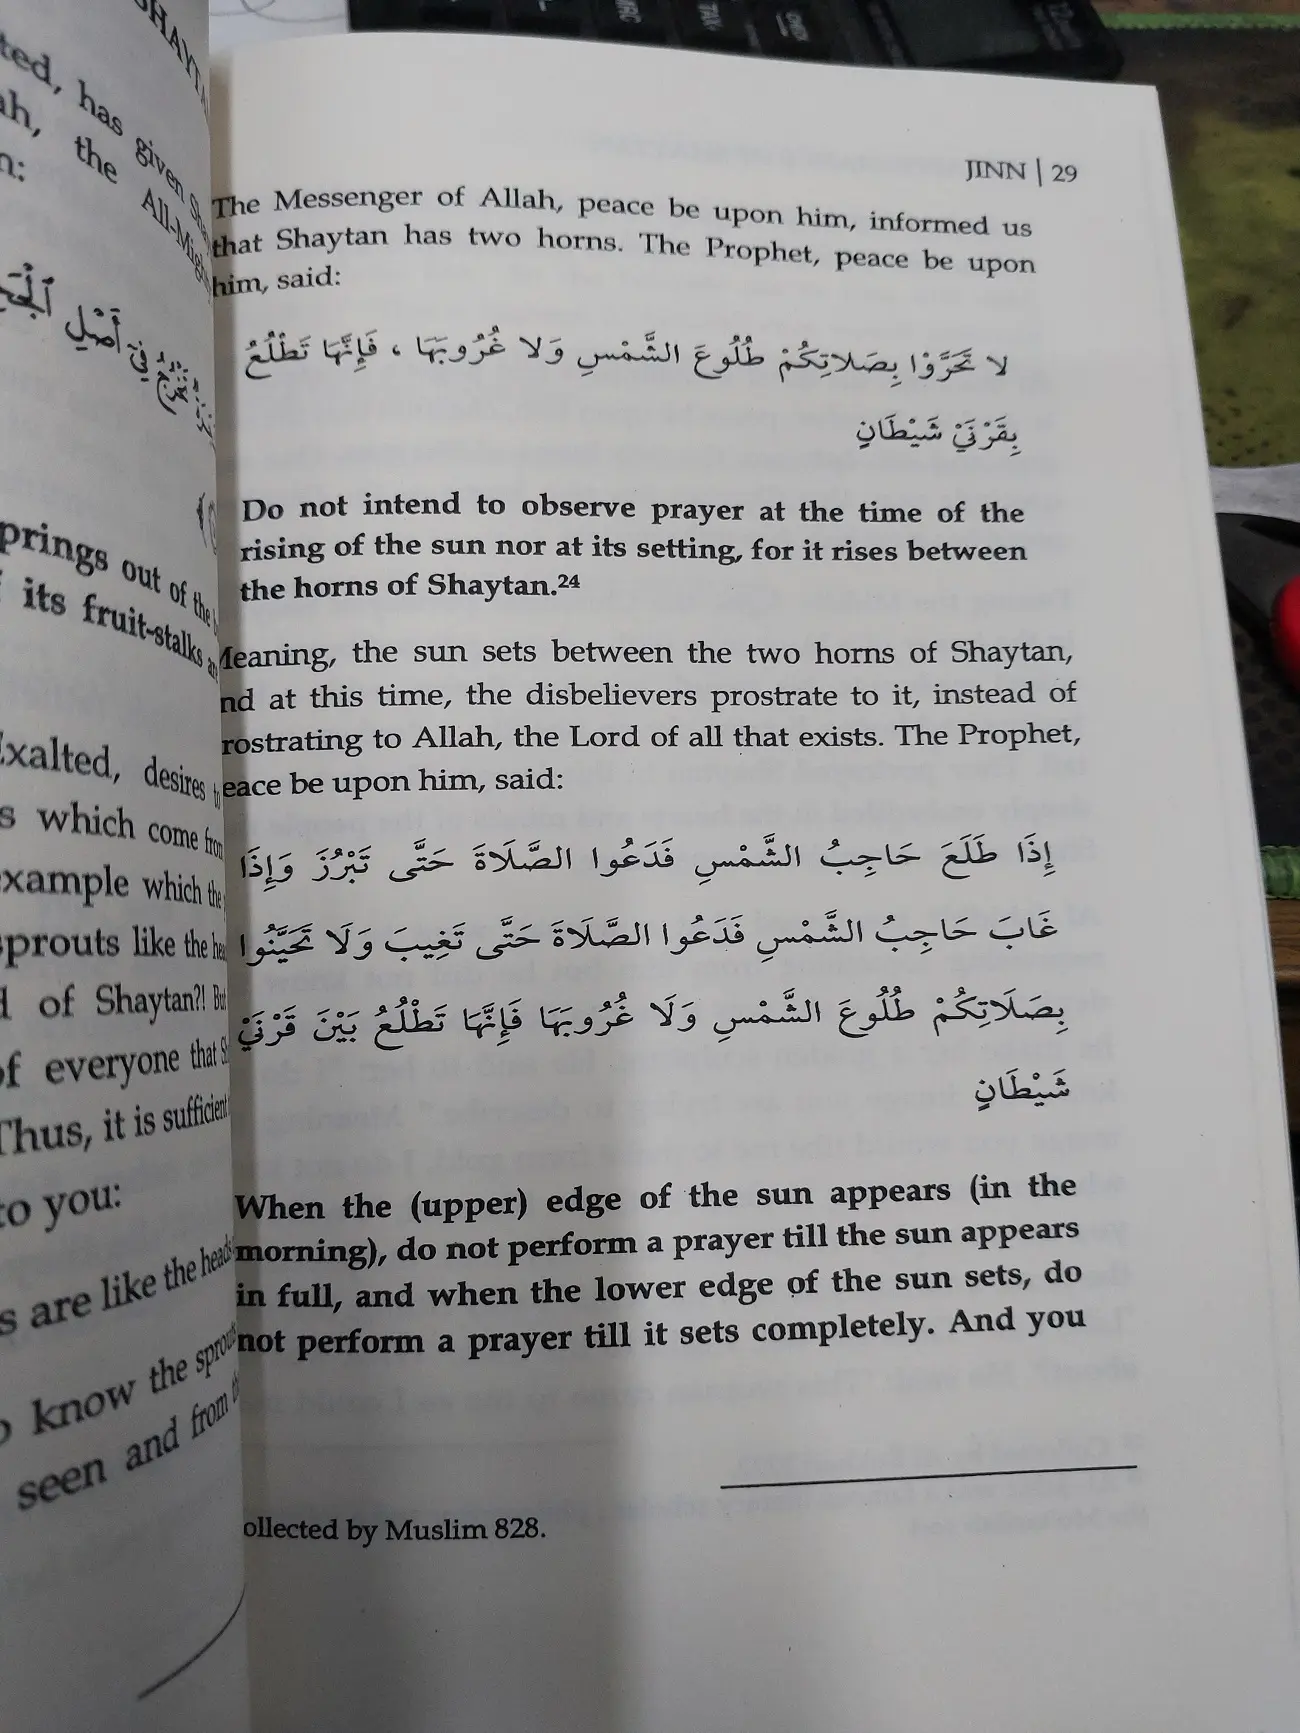 SHAYTA
ted, has given
ah, the All-Migh
n:
أَصْلِ
فِي
prings out of the
its fruit-stalks
Exalted, desires to
s which come from
example which the
sprouts like the
of Shaytan?! But
of everyone that
Thus, it is sufficient
to you:
s are like the heads
know the
seen and from
JINN | 29
The Messenger of Allah, peace be upon him, informed us
that Shaytan has two horns. The Prophet, peace be upon
him, said:
لا تَحَرَّوْا بِصَلاتِكُمْ طُلُوعَ الشَّمْسِ وَلا غُرُوبَهَا ، فَإِنَّهَا تَطْلُعُ
بِقَرْنَيْ شَيْطَانٍ
Do not intend to observe prayer at the time of the
rising of the sun nor at its setting, for it rises between
the horns of Shaytan.24
Meaning, the sun sets between the two horns of Shaytan,
nd at this time, the disbelievers prostrate to it, instead of
rostrating to Allah, the Lord of all that exists. The Prophet,
eace be upon him, said:
إِذَا طَلَعَ حَاجِبُ الشَّمْسِ فَدَعُوا الصَّلَاةَ حَتَّى تَبْرُزَ وَإِذَا
غَابَ حَاجِبُ الشَّمْسِ فَدَعُوا الصَّلَاةَ حَتَّى تَغِيبَ وَلَا تَحَيَّنُوا
بِصَلَاتِكُمْ طُلُوعَ الشَّمْسِ وَلَا غُرُوبَهَا فَإِنَّهَا تَطْلُعُ بَيْنَ قَرْنَيْ
شَيْطَانٍ
When the (upper) edge of the sun appears (in the
morning), do not perform a prayer till the sun appears
in full, and when the lower edge of the sun sets, do
not perform a prayer till it sets completely. And you
ollected by Muslim 828.